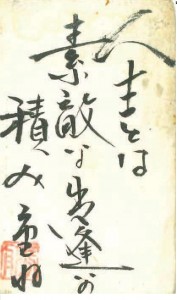 人生とは
素敵な出逢いの
積み重ね